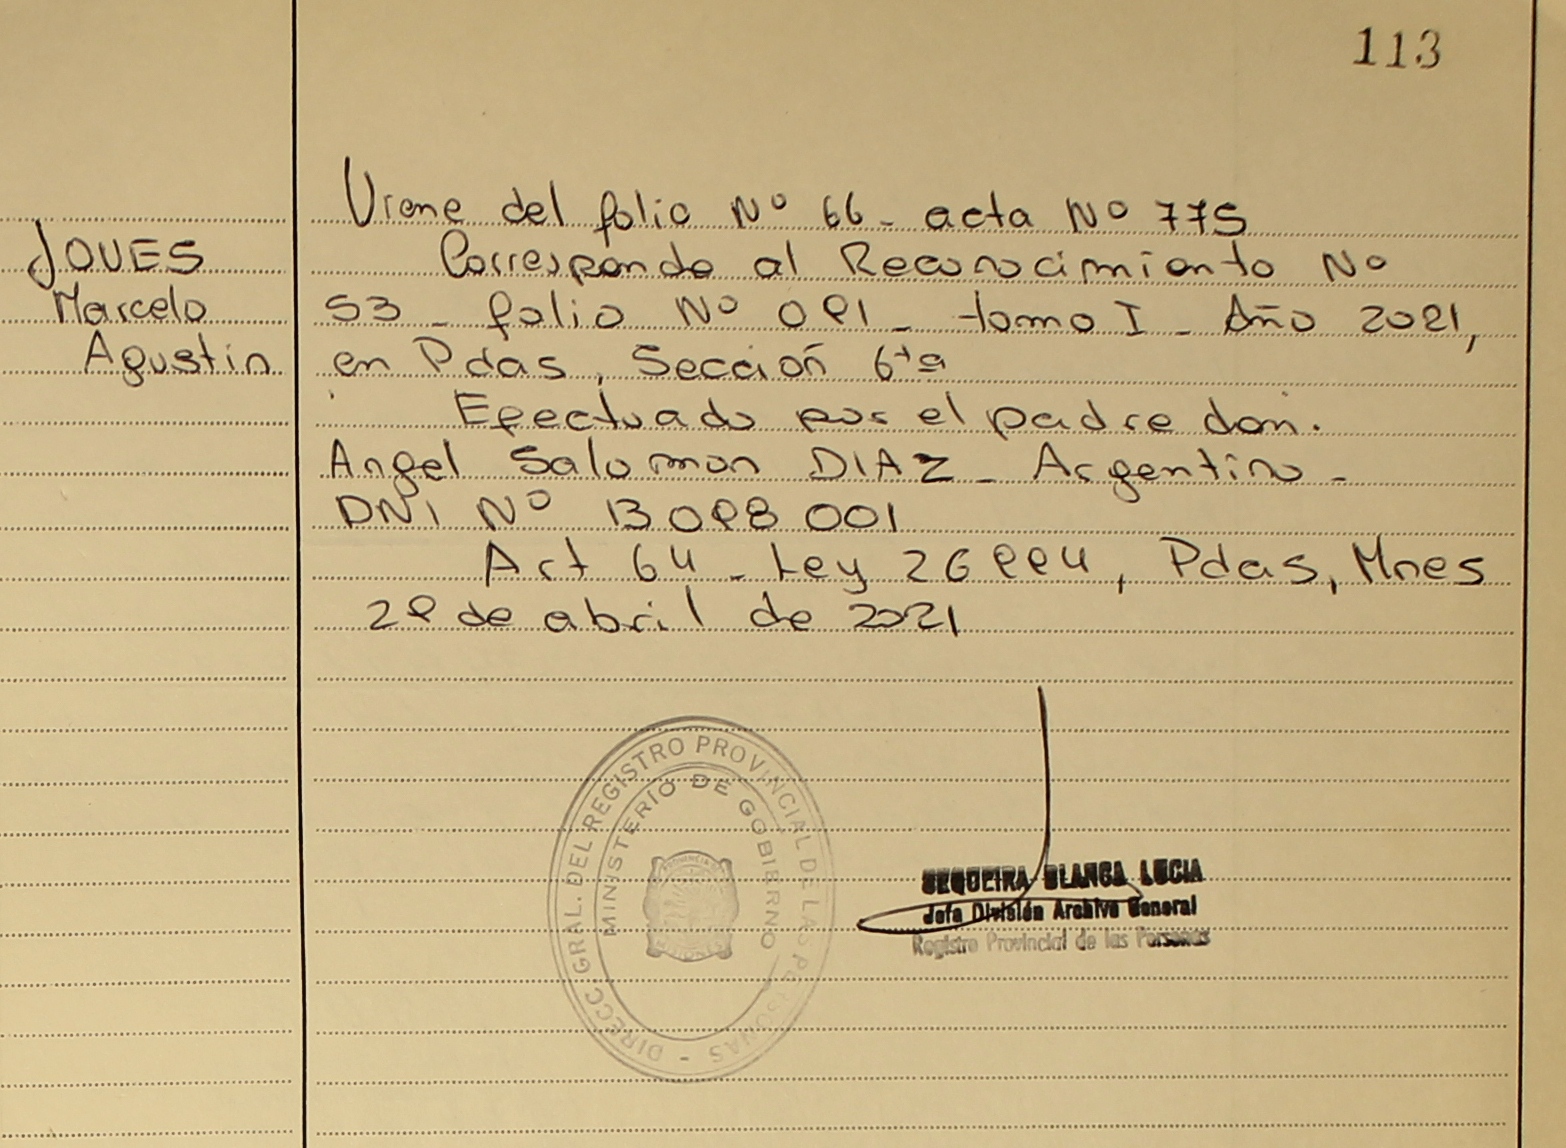 113
JOVES
Marcelo
Agustin
Viene del folio Nº 66 - acta Nº 775
Corresponde al Reconocimiento Nº
53 - folio Nº 091 - tomo I - Año 2021,
en Pdas, Sección 6ta
Efectuado por el padre don.
Angel Salomon DIAZ - Argentino -
DNI Nº 13 098 001
Art 64 - Ley 26994, Pdas, Mnes
29 de abril de 2021
DIRECC. GRAL. DEL REGISTRO PROVINCIAL DE LAS PERSONAS -
MINISTERIO DE GOBIERNO
SEQUEIRA BLANCA LUCIA
Jefa División Archivo General
Registro Provincial de las Personas